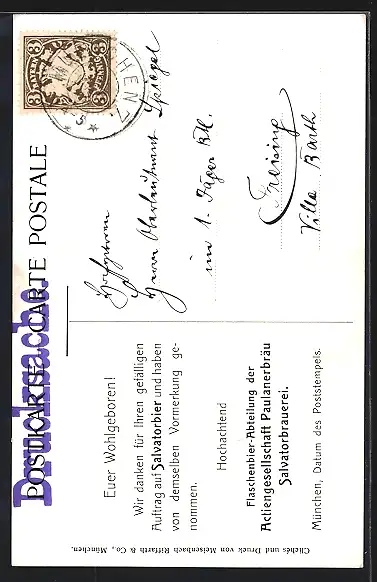 POSTKARTE – CARTE POSTALE
Drucksache.
BAYERN
3 3
HEN 7.
Euer Wohlgeboren!
Wir danken für Ihren gefälligen
Auftrag auf Salvatorbier und haben
von demselben Vormerkung ge-
nommen.
Hochachtend
Flaschenbier-Abteilung der
Actiengesellschaft Paulanerbräu
Salvatorbrauerei.
München, Datum des Poststempels.
Herrn Oberleutnant
im 1. Jäger Btl.
Freising
Villa Barth
Clichés und Druck von Meisenbach Riffarth & Co., München.